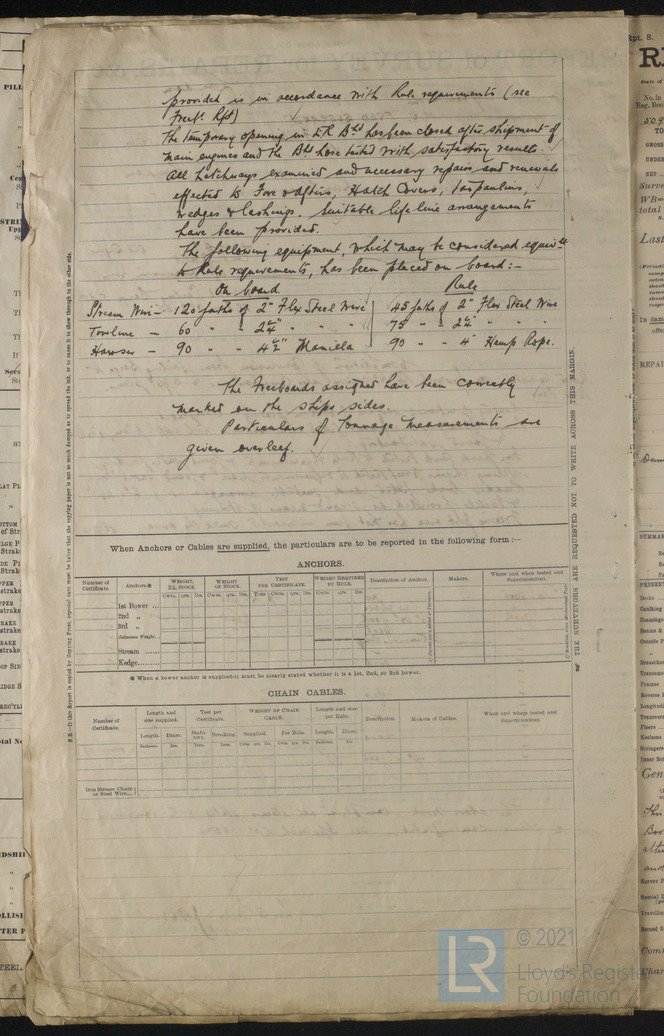 provided is in accordance with Rule requirements (see
Freebd. Rpt)
The temporary opening in E.R Bhd has been closed after shipment of
main engines and the Bhd hose tested with satisfactory results.
All Hatchways examined and necessary repairs and renewals
effected to Fore & afters, Hatch Covers, tarpaulins,
wedges & lashings. Suitable life line arrangements
have been provided.
The following equipment, which may be considered equivt
to Rule requirements, has been placed on board:-
On board Rule
Stream Wire - 120 faths of 2" Flex Steel Wire 45 faths of 2" Flex Steel Wire
Towline - 60 " " 2¼" " " " 75 " " 2¼" " " "
Hawser - 90 " " 4½" Manila 90 " " 4" Hemp Rope.
The Freeboards assigned have been correctly
marked on the ships sides.
Particulars of Tonnage Measurements are
given overleaf.
When Anchors or Cables are supplied, the particulars are to be reported in the following form :—
ANCHORS.
Number of Certificate. Anchors.* WEIGHT, EX. STOCK. WEIGHT OF STOCK. TEST PER CERTIFICATE. WEIGHT REQUIRED BY RULE. Description of Anchor. Makers. Where and when tested and Superintendent.
Cwts. qrs. lbs. Cwts. qrs. lbs. Tons Cwts. qrs. lbs. Cwts. qrs. lbs.
1st Bower ...
2nd "
3rd "
Collective Weight.
Stream
Kedge
* When a bower anchor is supplied it must be clearly stated whether it is a 1st, 2nd, or 3rd bower.
CHAIN CABLES.
Number of Certificate. Length and size supplied. Test per Certificate. WEIGHT OF CHAIN CABLE. Length and size per Rule. Description. Makers of Cables. When and where tested and Superintendent.
Length. Diam. Statutory. Breaking. Supplied. Per Rule. Length. Diam.
Fathoms. Ins. Tons. Tons. Cwts. qrs. lbs. Cwts. qrs. lbs. Fathoms. Ins.
Iron Stream Chain
or Steel Wire
THE SURVEYORS ARE REQUESTED NOT TO WRITE ACROSS THIS MARGIN.
Rpt. 8.
LR
© 2021
Lloyd's Register
Foundation